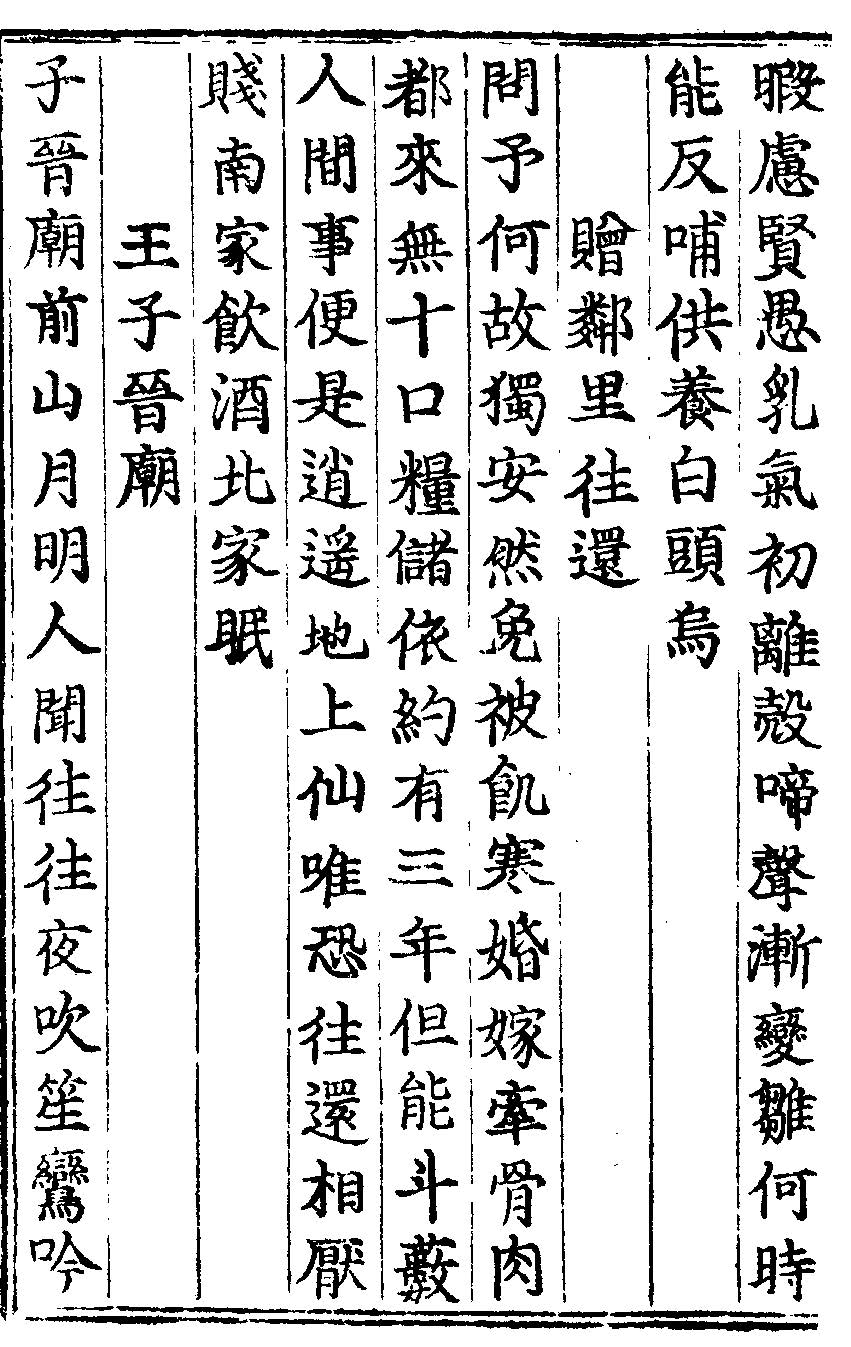 暇慮賢愚乳氣初離殻啼聲漸變雛何時
能反哺供養白頭烏
贈鄰里往還
問予何故獨安然免被飢寒婚嫁牽骨肉
都來無十口糧儲依約有三年但能斗藪
人間事便是逍遥地上仙唯恐往還相厭
賤南家飲酒北家眠
王子晉廟
子晉廟前山月明人聞往往夜吹笙鸞吟